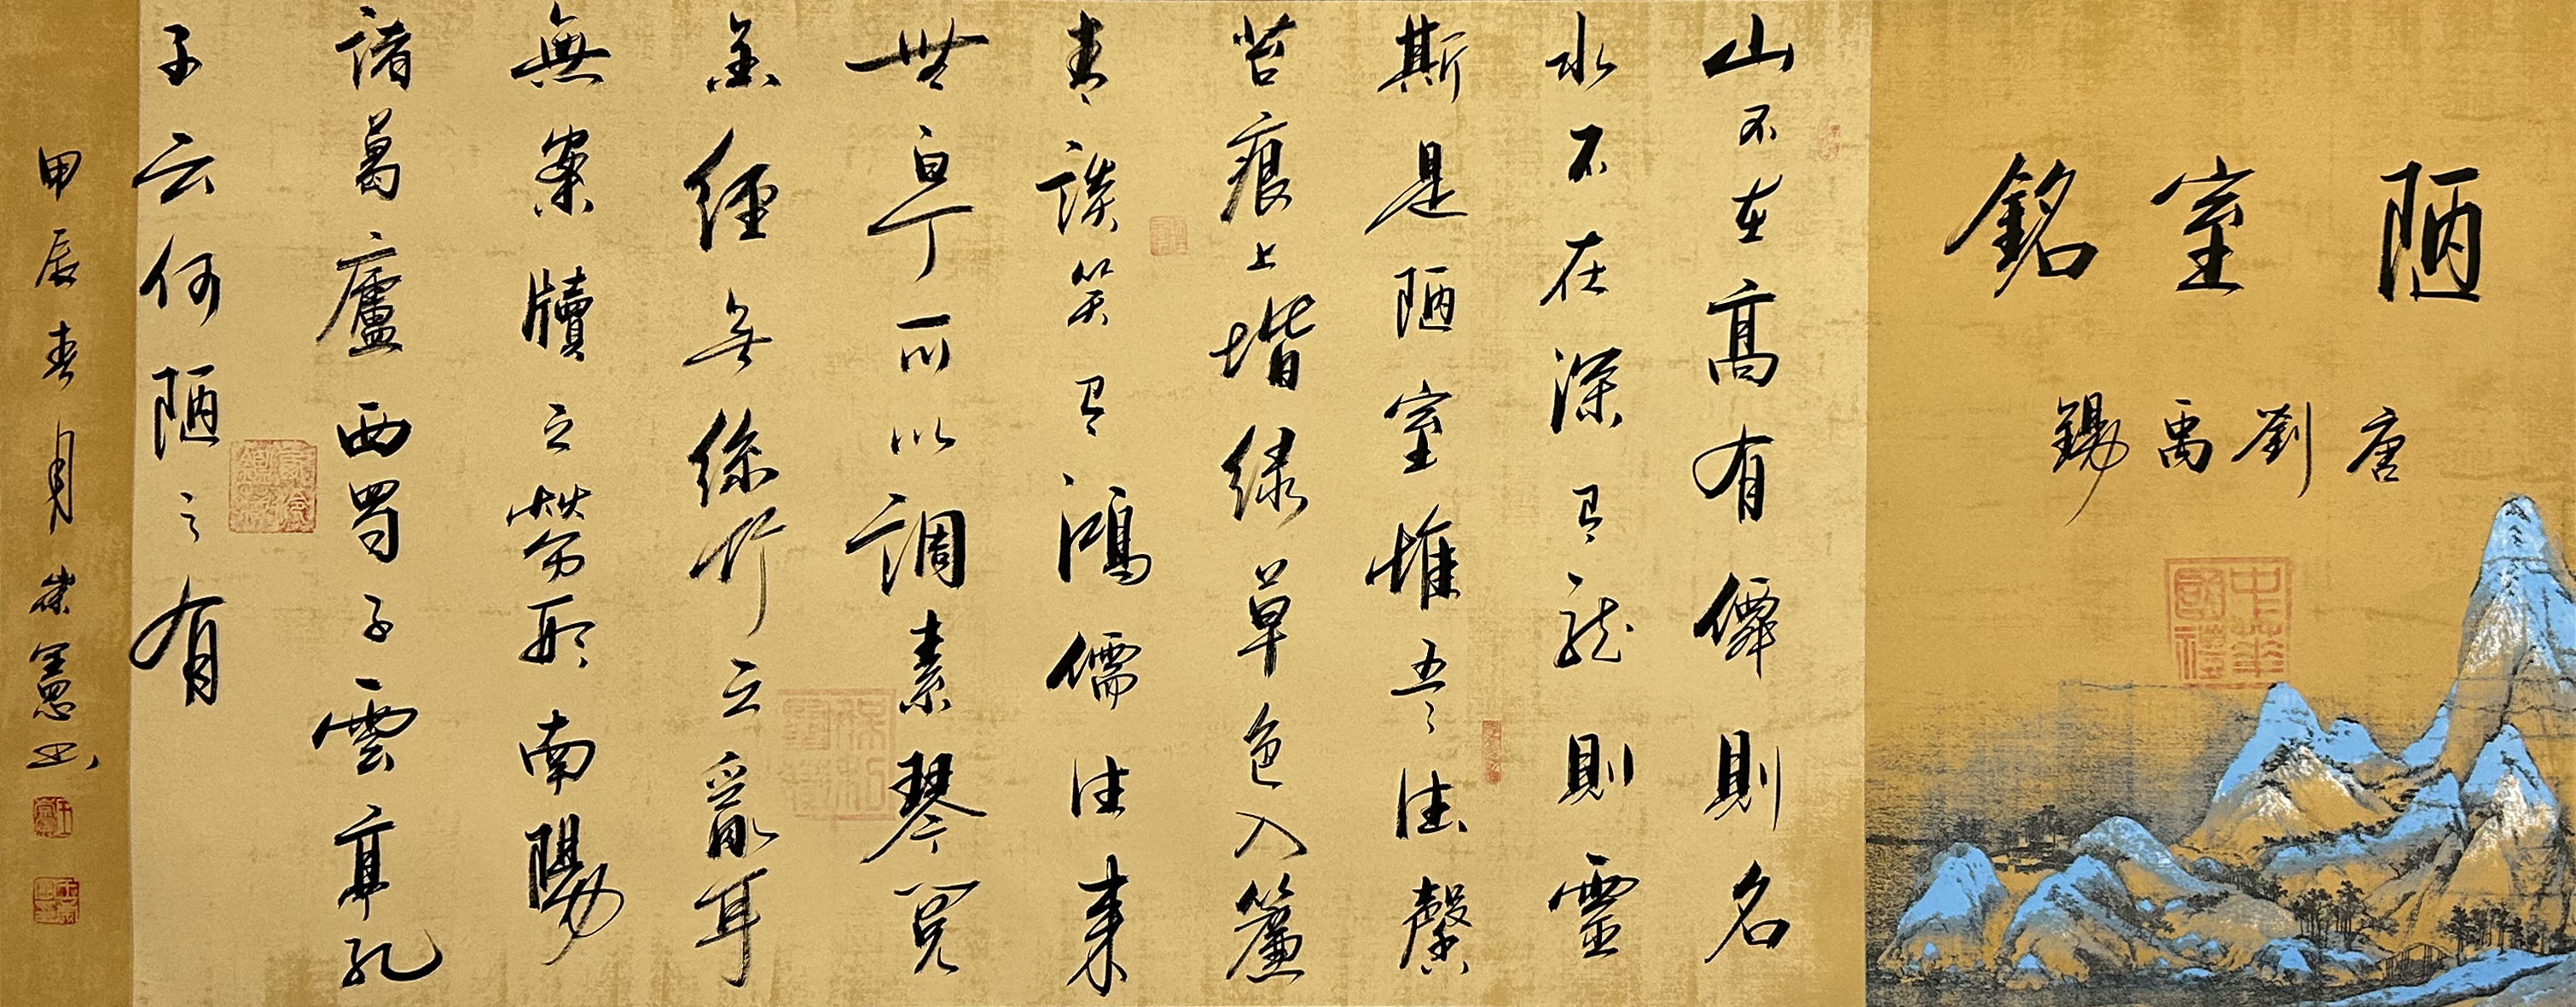 陋室銘
唐劉禹錫
山不在高有僊則名
水不在深有龍則靈
斯是陋室惟吾德馨
苔痕上堦綠草色入簾
青談笑有鴻儒往來
無白丁可以調素琴閱
金經無絲竹之亂耳
無案牘之勞形南陽
諸葛廬西蜀子雲亭孔
子云何陋之有
甲辰春月崇憲書
中華國禮